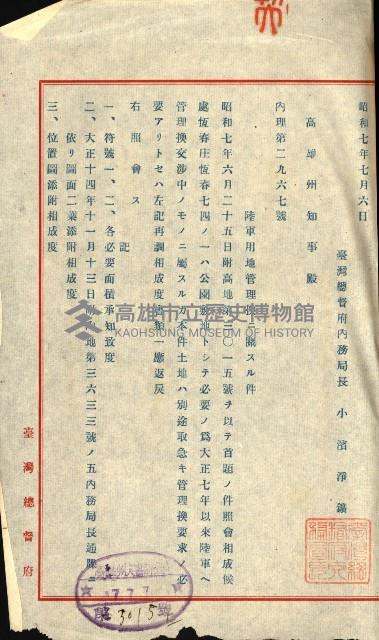 昭和七年七月六日
臺灣總督府內務局長 小濱淨鑛
高雄州知事殿
內理第二九六七號
陸軍用地管理換ニ關スル件
昭和七年六月二十五日附高地第三〇一五號ヲ以テ首題ノ件照會相成候
處恆春庄恆春七四ノ一ハ公園敷地トシテ必要ノ爲大正七年以來陸軍ヘ
管理換交涉中ノモノニ屬スル 本件土地ハ別途取急キ管理換要求ノ必
要アリトセハ左記再調相成度 類一應返戾
右照會ス
記
一、符號一、二、各必要面積承知致度
二、大正十四年十一月十三日附 地第三六三三號ノ五內務局長通牒ニ
依リ圖面二葉添附相成度
三、位置圖添附相成度
臺灣總督府
高雄市立歷史博物館
KAOHSIUNG MUSEUM OF HISTORY
7.7.7
第3015號